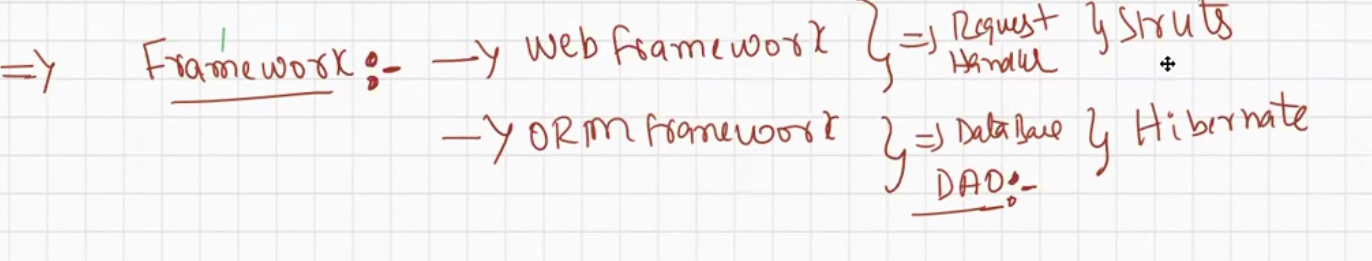 => Framework :- -> Web framework } => Request Handle } Struts
-> ORM framework } => DataBase DAO :- } Hibernate